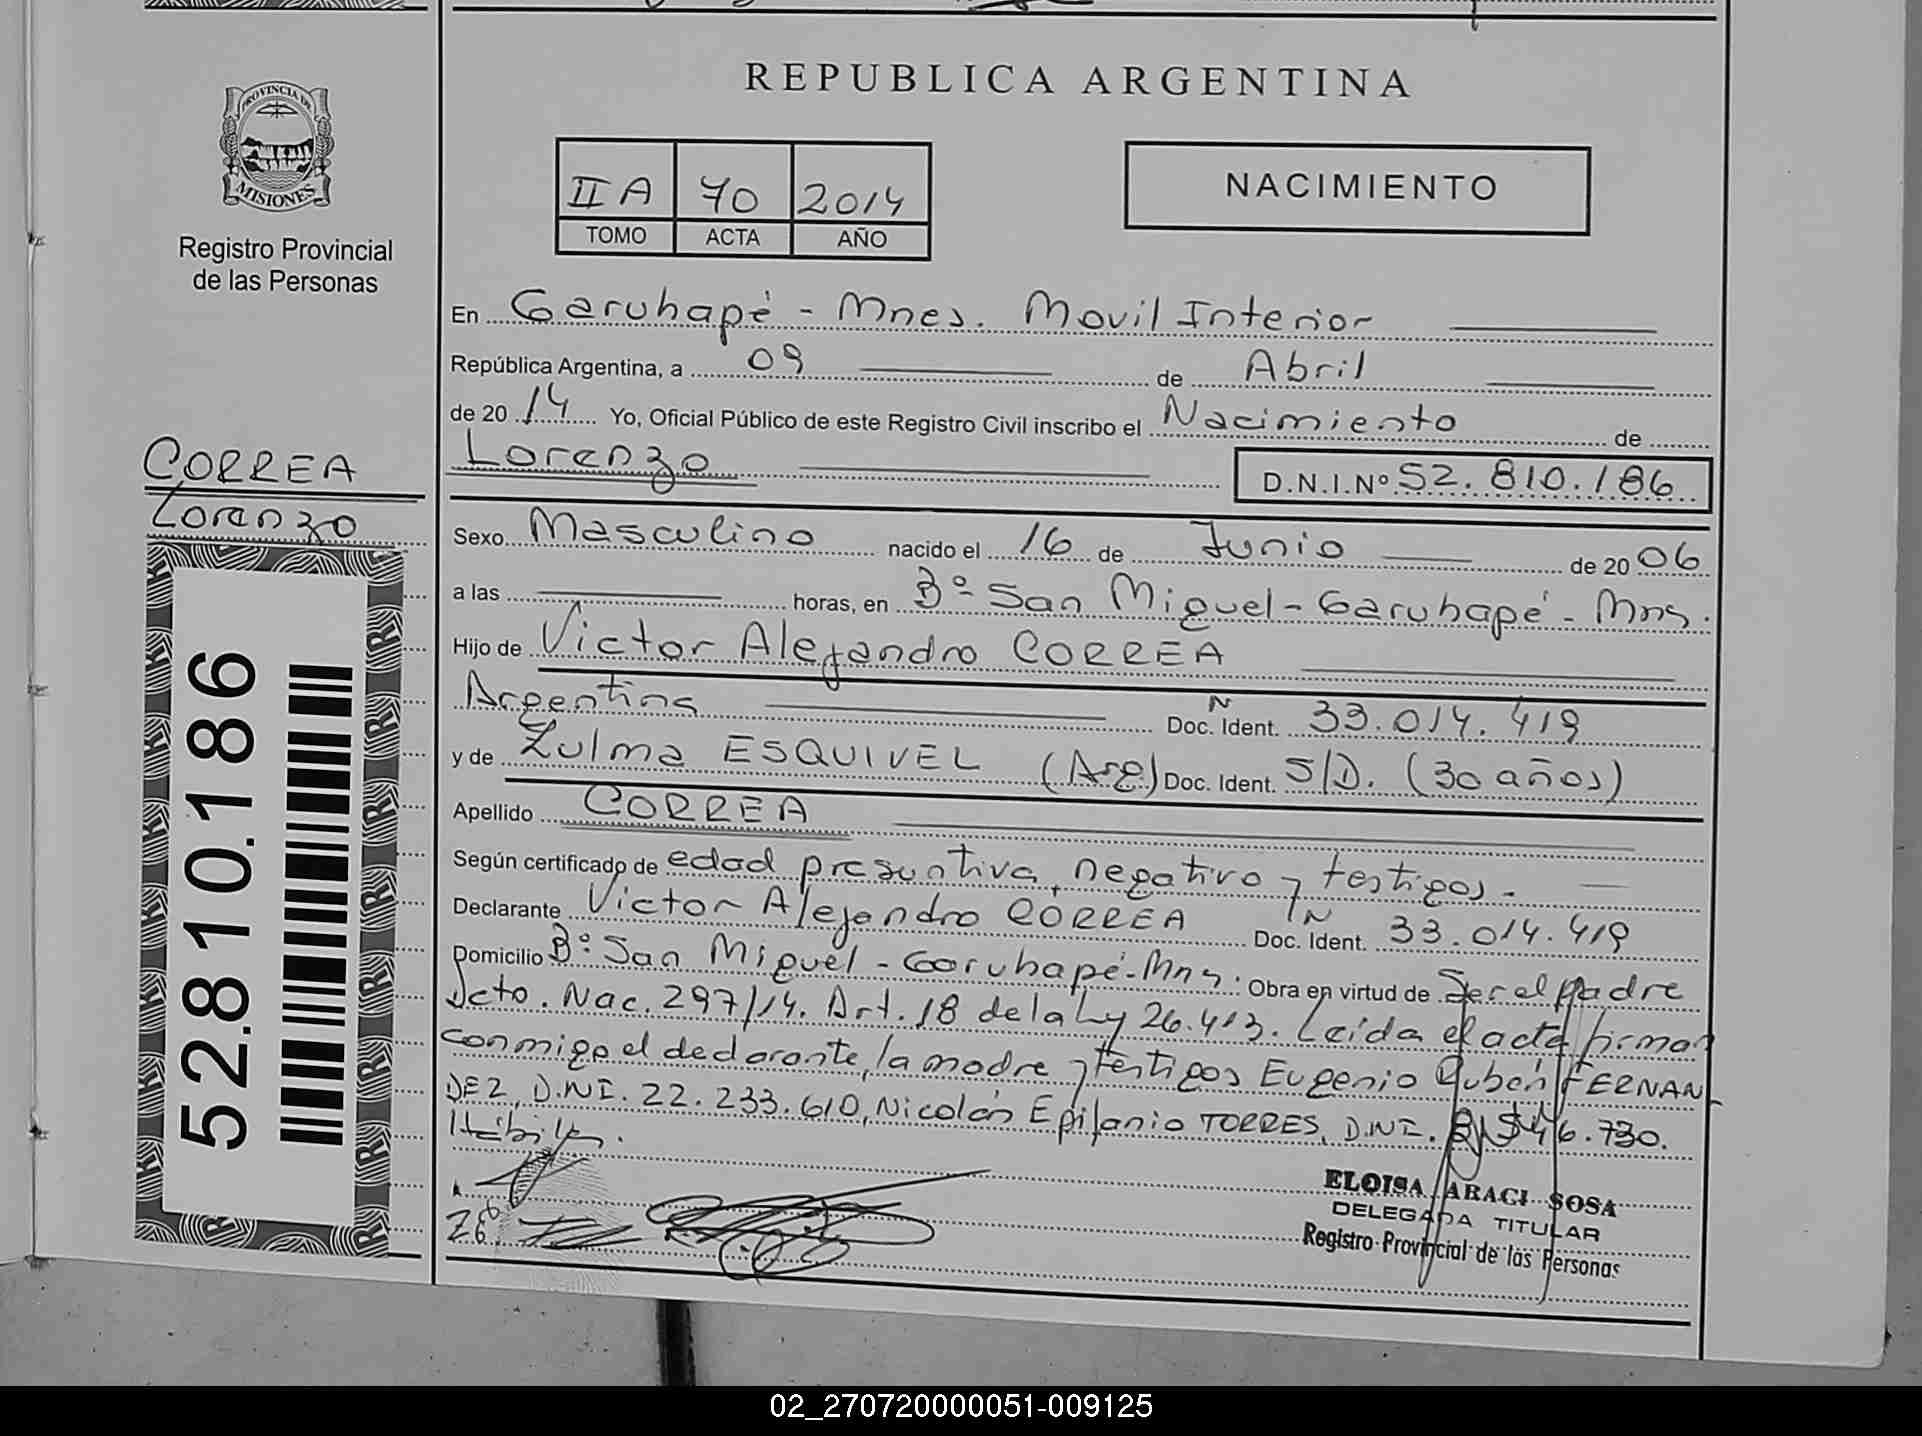 REPUBLICA ARGENTINA
PROVINCIA DE
MISIONES
Registro Provincial
de las Personas
II A 70 2014
TOMO ACTA AÑO
NACIMIENTO
En Garuhapé - Mnes. Movil Interior
República Argentina, a 09 de Abril
de 20 14 Yo, Oficial Público de este Registro Civil inscribo el Nacimiento de
Lorenzo D.N.I.Nº 52.810.186
CORREA
Lorenzo
52.810.186
Sexo Masculino nacido el 16 de Junio de 20 06
a las horas, en Bº San Miguel - Garuhapé - Mns.
Hijo de Victor Alejandro CORREA
Argentina Doc. N Ident. 33.014.419
y de Zulma ESQUIVEL (Arg) Doc. Ident. S/D. (30 años)
Apellido CORREA
Según certificado de edad presuntiva, negativo y testigos.
Declarante Victor Alejandro CORREA Doc. N Ident. 33.014.419
Domicilio Bº San Miguel - Garuhapé - Mns. Obra en virtud de Ser el padre
Dcto. Nac. 297/14. Art. 18 de la Ly 26.413. Leída el acta firman
conmigo el declarante, la madre y testigos Eugenio Ruben FERNAN
DEZ, D.N.I. 22.233.610, Nicolás Epifanio TORRES, D.N.I. 6.730.
Hábiles.
ELOISA ARACI SOSA
DELEGADA TITULAR
Registro Provincial de las Personas
02_270720000051-009125